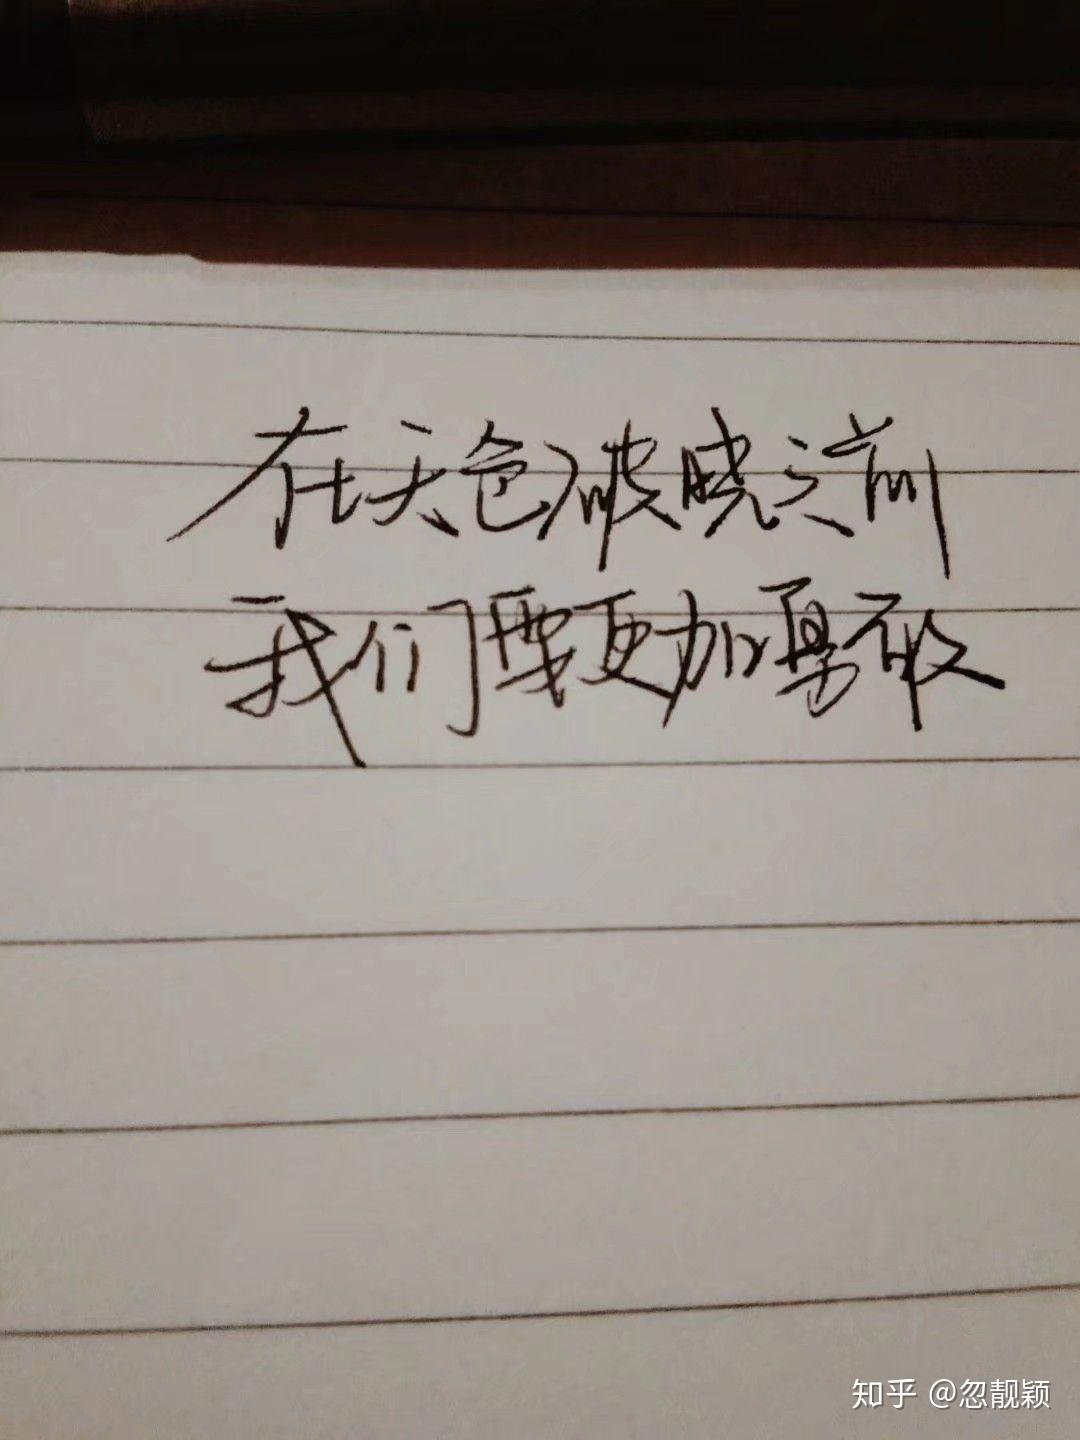 在天色破晓之前
我们要更加勇敢
知乎 @忽靓颖